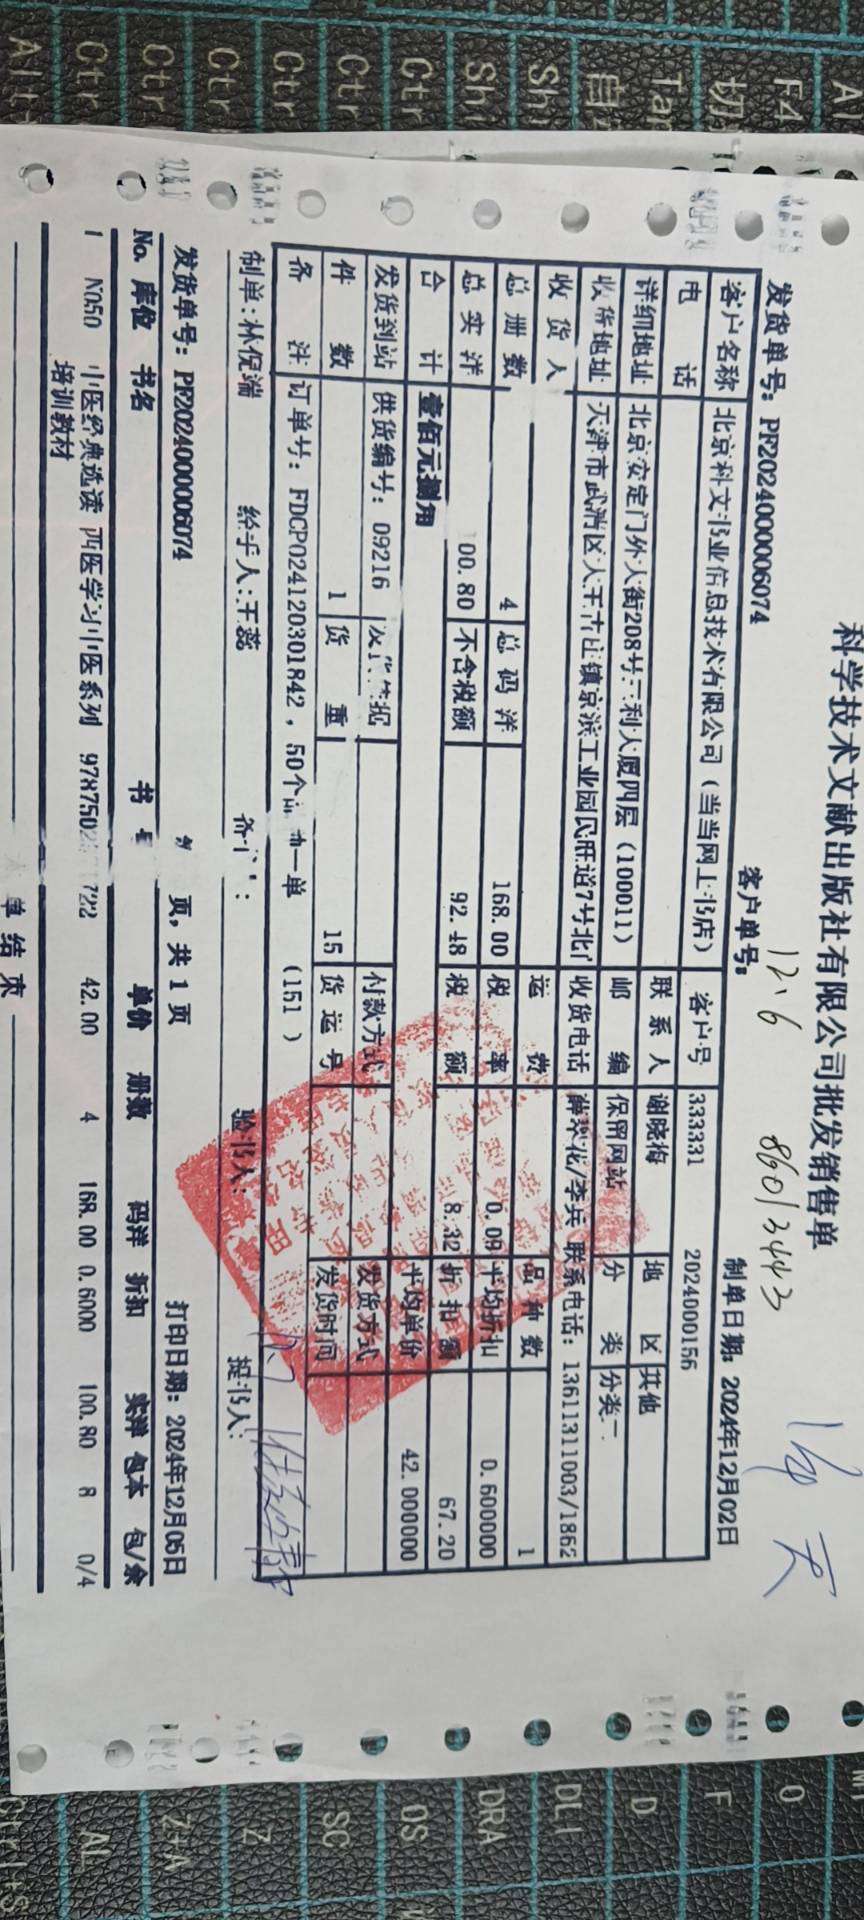 科学技术文献出版社有限公司批发销售单
发货单号：PF2024000006074 客户单号： 制单日期：2024年12月02日
12.6 86013443
客户名称 北京科文书业信息技术有限公司（当当网上书店） 客户号 333331 2024000156
电话 联系人 谢晓梅 地区 其他
详细地址 北京安定门外大街208号三利大厦四层（100011） 邮编 保留网站 分类 分类二
收货地址 天津市武清区大王古庄镇京滨工业园民旺道7号北门 收货电话 联系电话：13611311003/1862
收货人 运费 品种数 1
总册数 4 总码洋 168.00 税率 0.09 平均折扣 0.600000
总实洋 100.80 不含税额 92.48 税额 8.32 折扣额 67.20
合计 壹佰元捌角 平均单价 42.000000
发货到站 供货编号：09216 付款方式 发货方式
件数 1 货重 15 货运号 发货时间
备注 订单号：FDCP024120301842，50个 一单 （151 ）
制单:林倪端 经手人:王蕊 验书人: 提书人:
发货单号：PF2024000006074 页，共 1 页 打印日期：2024年12月05日
No. 库位 书名 书 单价 册数 码洋 折扣 实洋 包本 包/余
1 N050 中医经典选读 西医学习中医系列 42.00 4 168.00 0.6000 100.80 8 0/4
培训教材
单 结 束
Al F4 切 Tar 自 Shi Shi Ctr Ctr Ctr Ctr Ctr Ctr Alt+
M O F D DLI DRA OS SC Z Z+A AL Ctrl+S